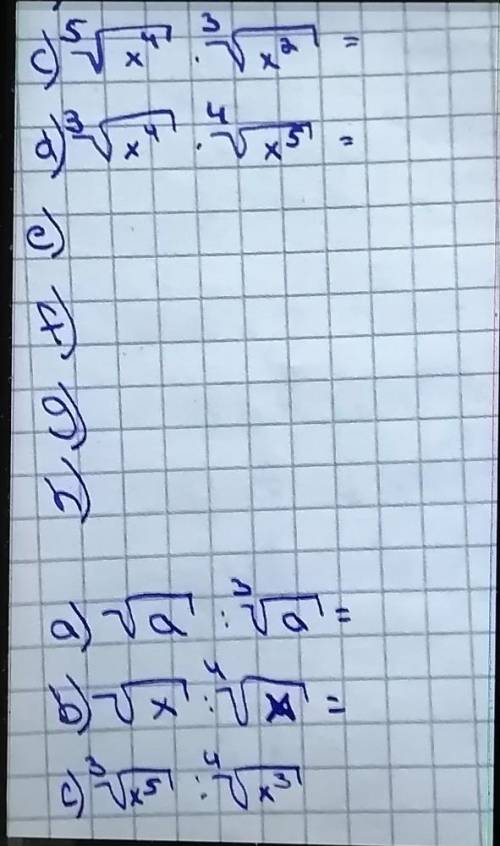 c) ⁵√x⁴ · ³√x² =
d) ³√x⁴ · ⁴√x⁵ =
e)
f)
g)
h)
a) √a : ³√a =
b) √x : ⁴√x =
c) ³√x⁵ : ⁴√x³